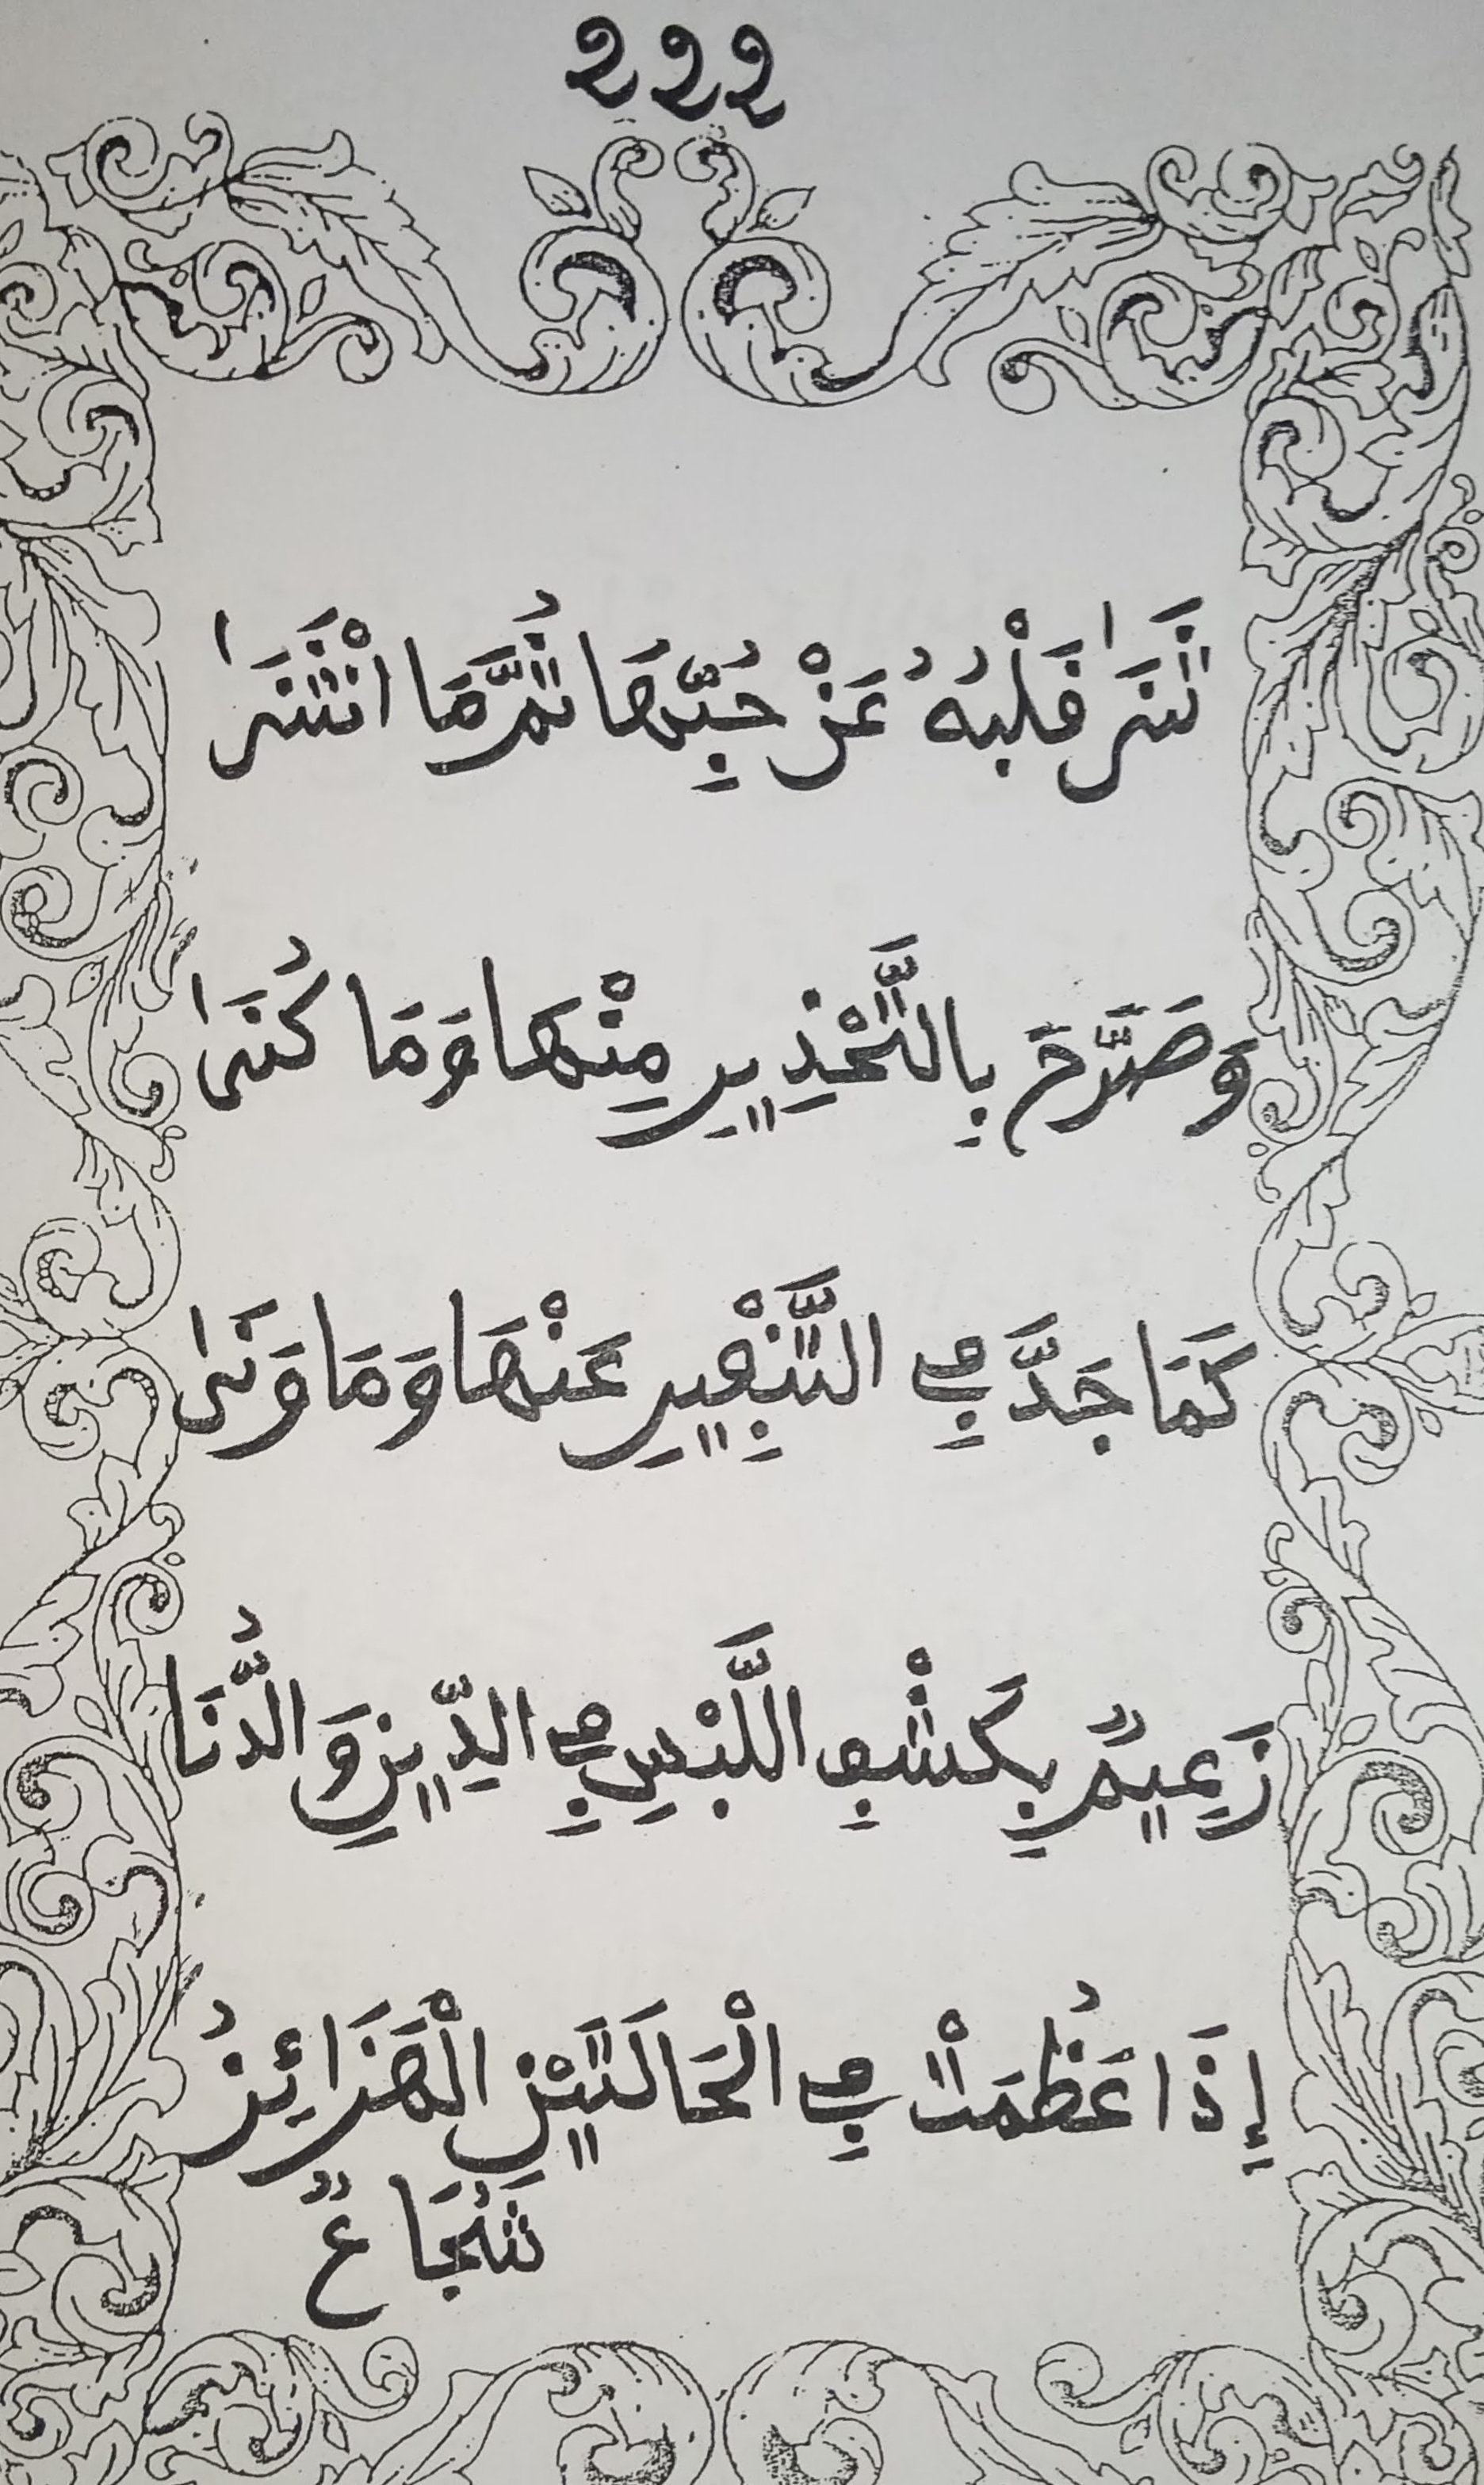 ٢٢٢
ثَنَىٰ قَلْبُهُ عَنْ حُبِّهَا ثُمَّ مَا انْثَنَىٰ
وَصَرَّحَ بِالتَّحْذِيرِ مِنْهَا وَمَا كُنَىٰ
كَمَا جَدَّ فِي التَّنْفِيرِ عَنْهَا وَمَا وَنَىٰ
زَعِيمٌ بِكَشْفِ اللَّبْسِ فِي الدِّينِ وَالدُّنَا
إِذَا عَظُمَتْ فِي الْحَالَتَيْنِ الْهَزَائِزُ
شُجَاعٌ